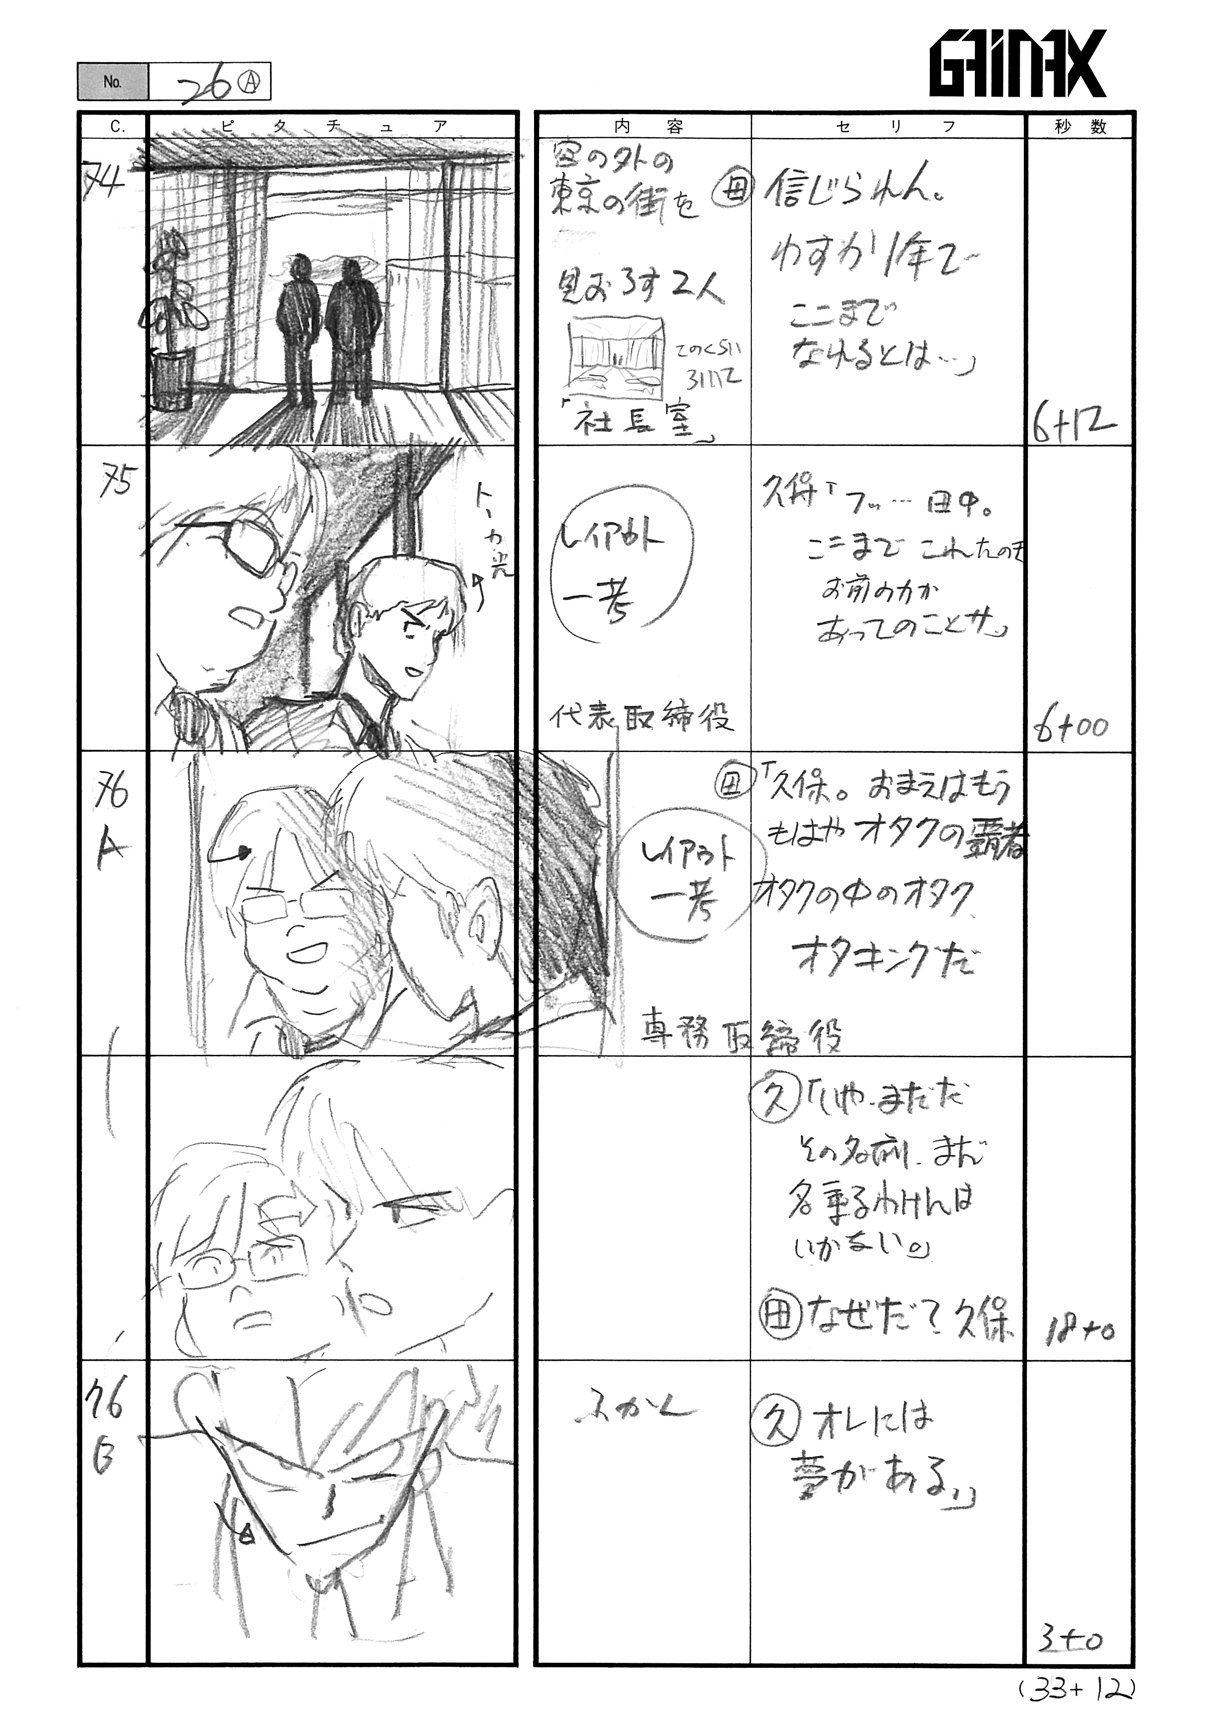 GAINAX
No. 26 Ⓐ
C. ピクチュア 内容 セリフ 秒数
74
窓の外の
東京の街を
見おろす2人
このくらい
ヨリに
「社長室」
田 信じられん。
わずか1年で
ここまで
なれるとは…」
6+12
75
トーカ光
レイアウト
一考
代表取締役
久保「フッ… 田中。
ここまでこれたのも
お前の力が
あってのことサ」
6+00
76
A
レイアウト
一考
専務取締役
田「久保。おまえはもう
もはやオタクの覇者
オタクの中のオタク
オタキングだ
久「いや、まだだ
その名前、まだ
名乗るわけんは
いかない。」
田 なぜだ? 久保
18+0
76
B
ふかん
久 オレには
夢がある。」
3+0
(33+12)